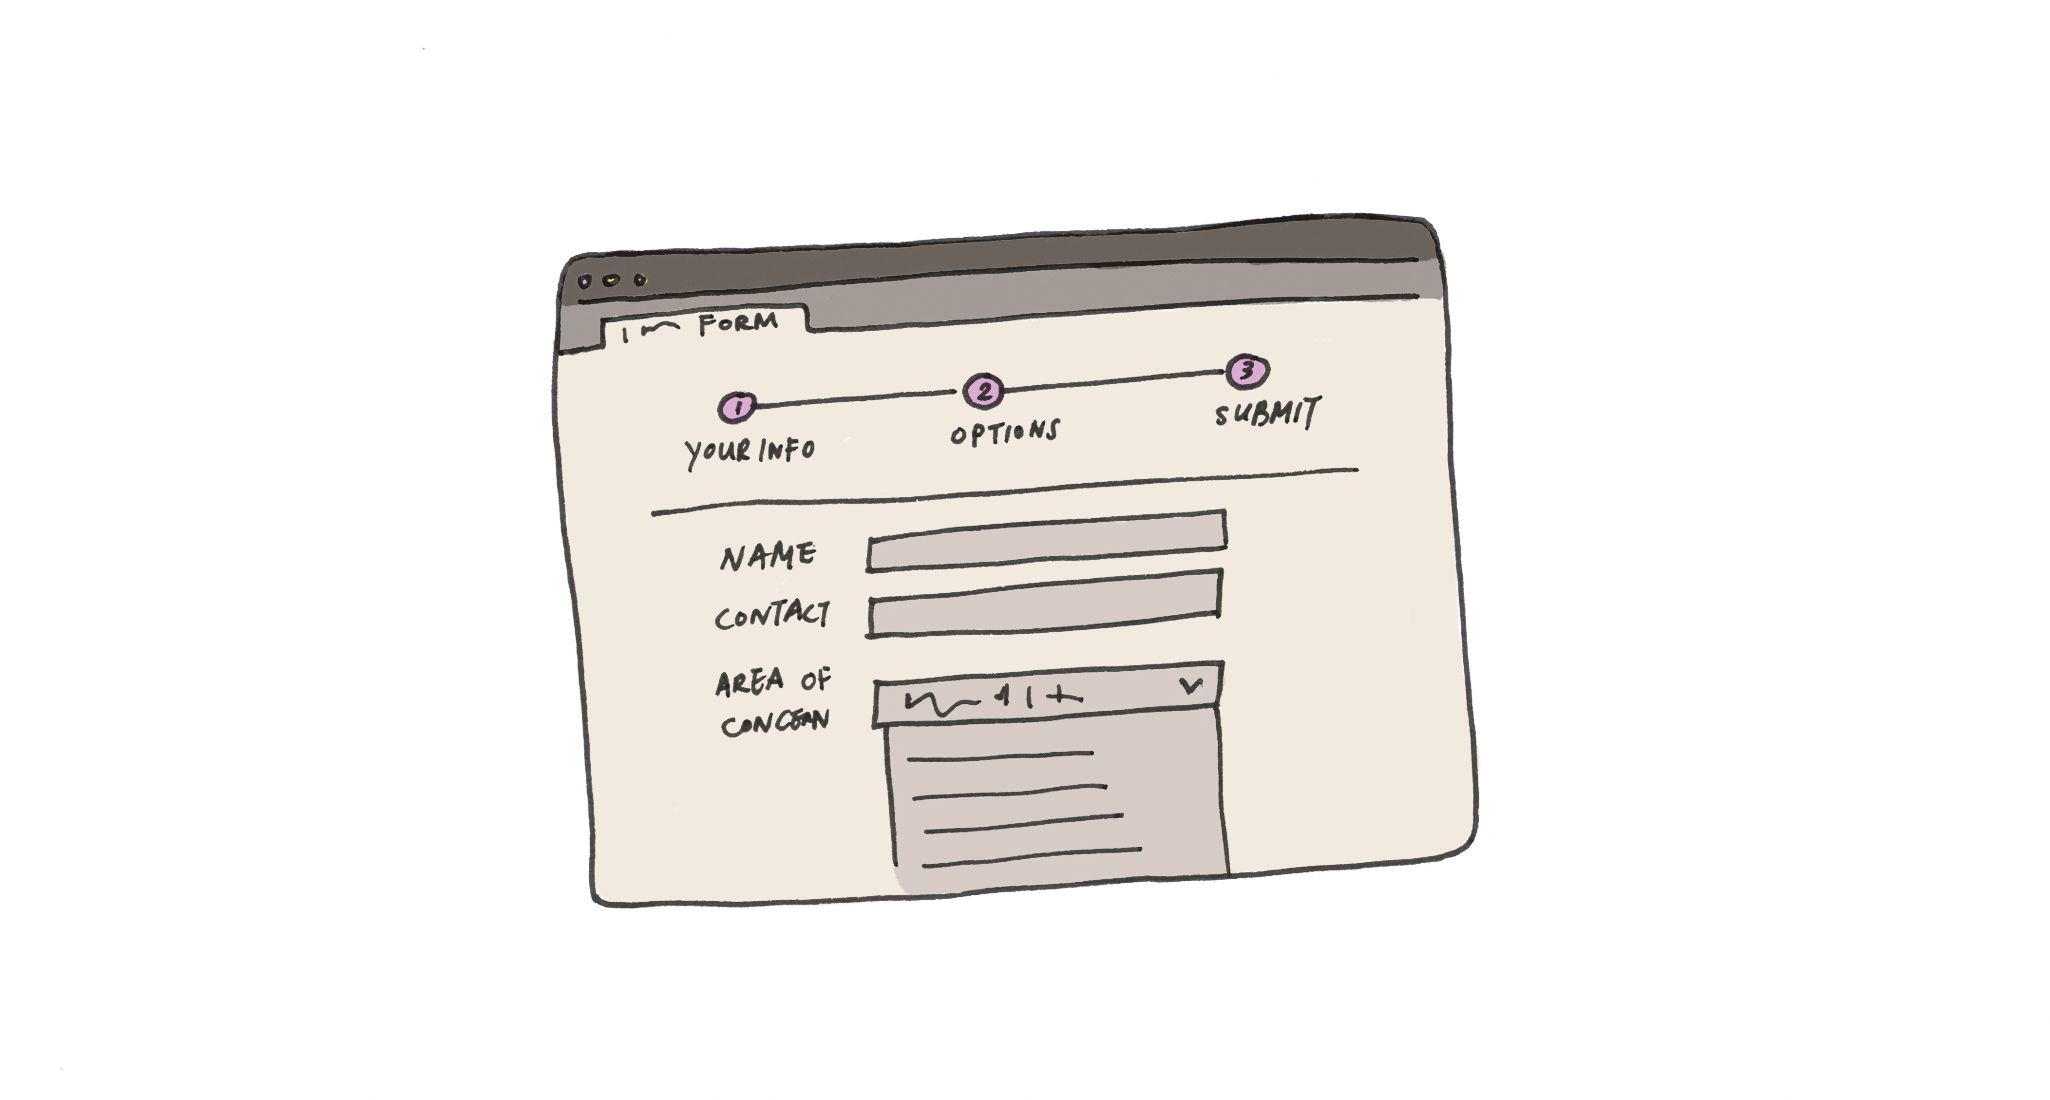 FORM
1
2
3
YOUR INFO
OPTIONS
SUBMIT
NAME
CONTACT
AREA OF
CONCERN